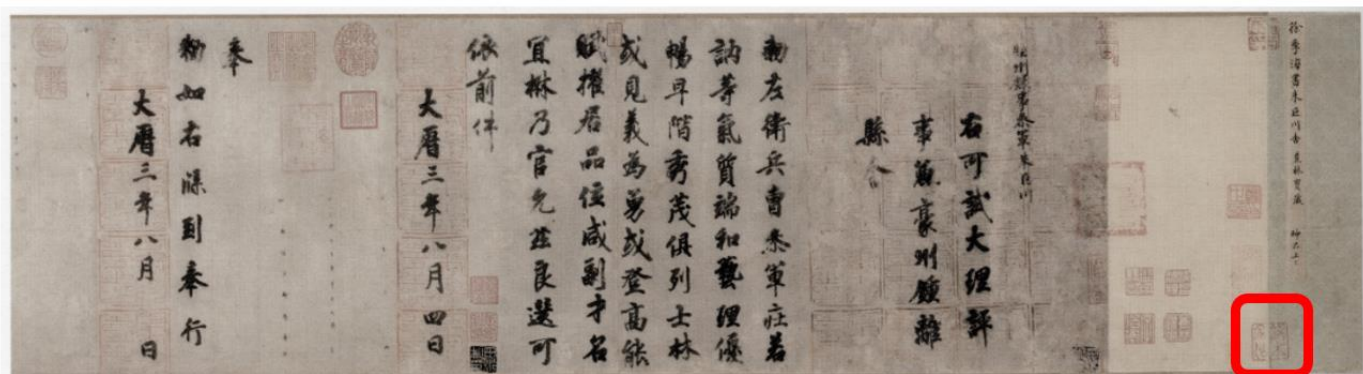 徐季海書朱巨川告 神品上
睦州錄事參軍朱巨川
右可試大理評
事兼豪州鍾離
縣令
勑左衛兵曹參軍莊若
訥等氣質端和藝理優
暢早階秀茂俱列士林
或見義為勇或登高能
賦擢居品位咸副才名
宜楙乃官允茲良選可
依前件
大曆三年八月四日
奉
勑如右牒到奉行
大曆三年八月 日